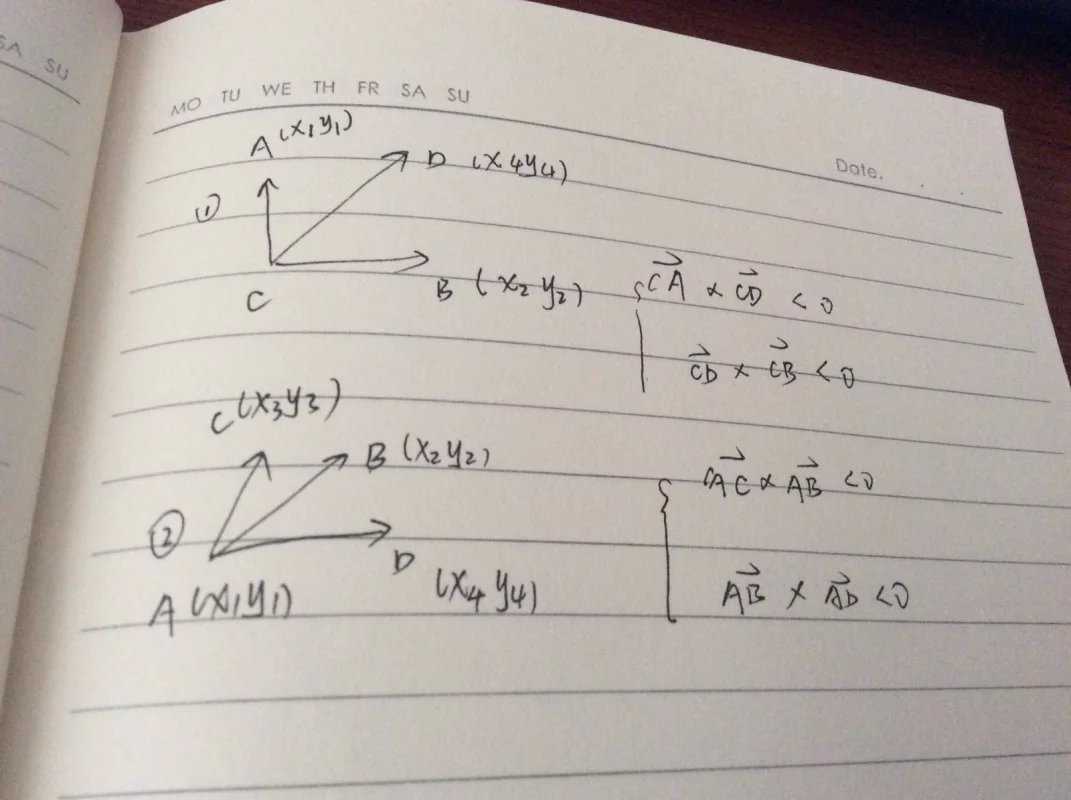 SA SU
MO TU WE TH FR SA SU
Date.
A (x1y1)
D (x4y4)
①
C
B (x2y2)
CA × CD < 0
CD × CB < 0
C (x3y3)
B (x2y2)
②
D
A (x1y1)
(x4y4)
AC × AB < 0
AB × AD < 0